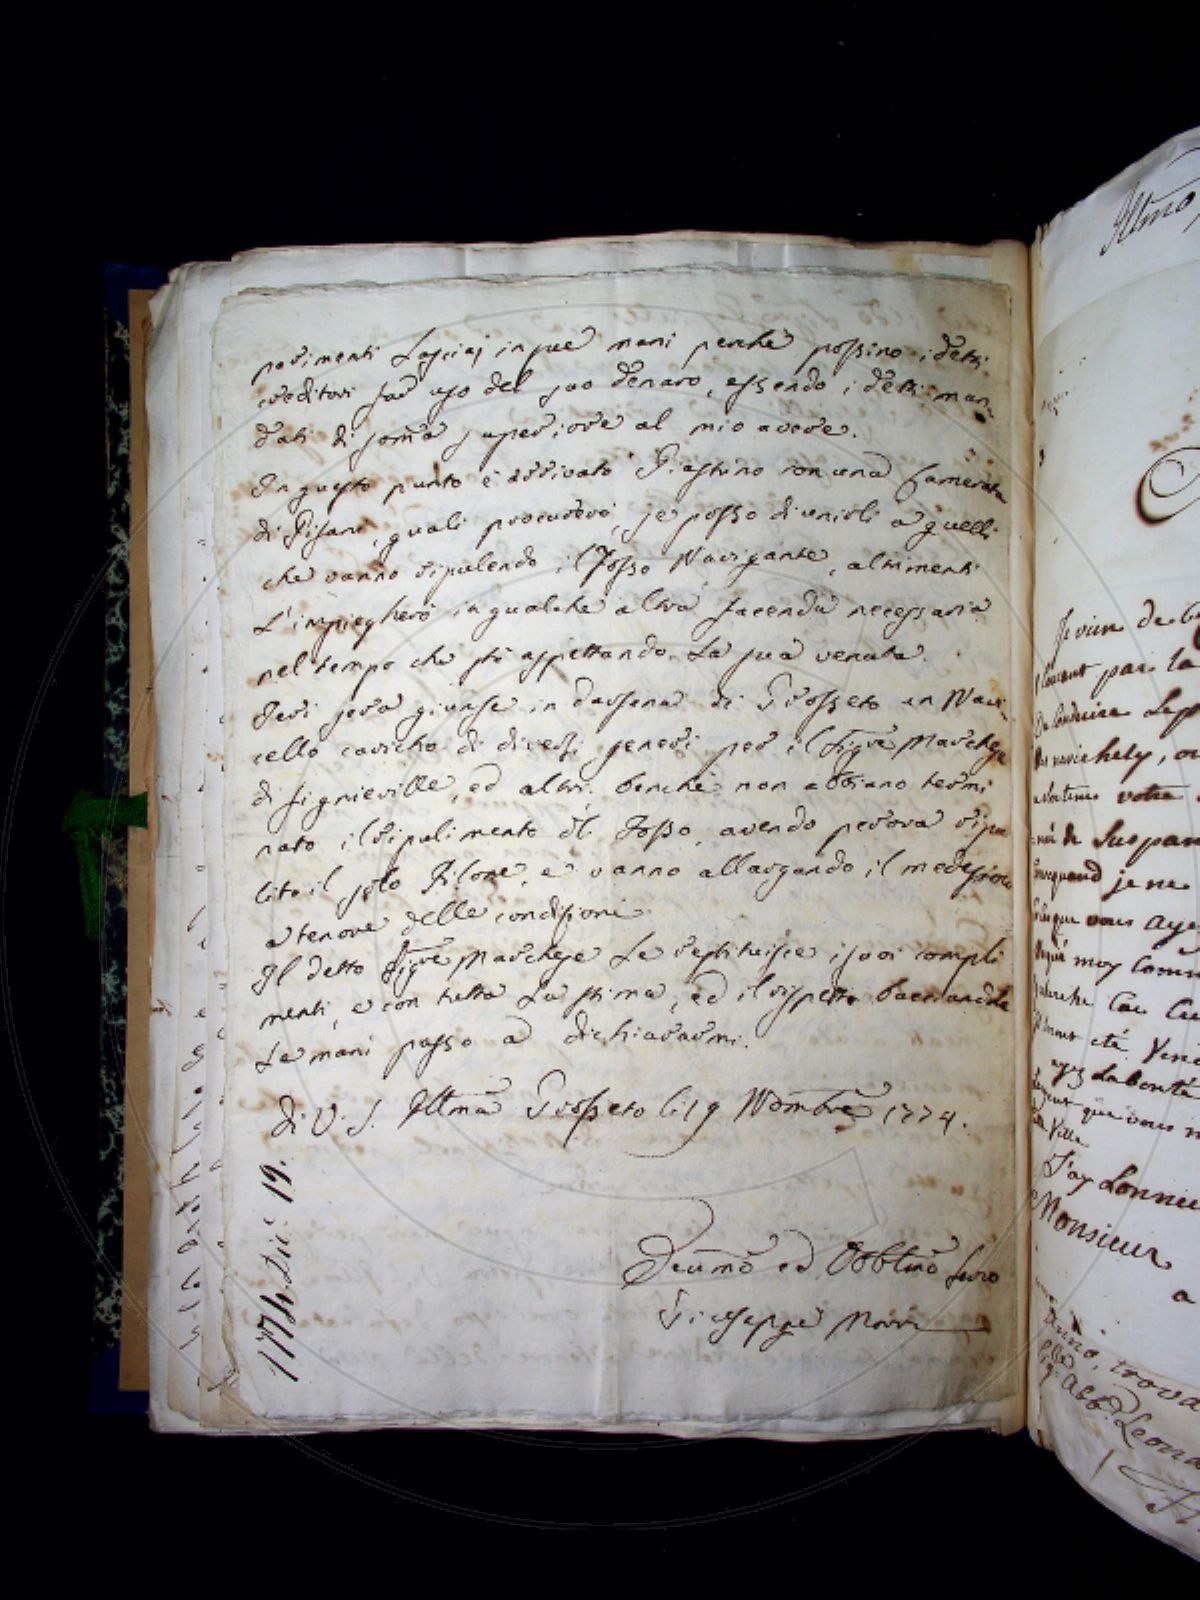 pavimenti Lasciaj in sue mani perchè possino i detti
creditori far uso del suo denaro, essendo i detti man-
dati di som̃a superiore al mio avere.
In questo punto è arrivato Piastrino con una Camerata
di Pisani, quali procurerò, se posso di unirli a quelli
che vanno ripulendo il Fosso Navigante, altrimenti
L'impiegherò in qualche altra facenda necessaria
nel tempo che stò aspettando La sua venuta.
Jeri sera giunse in darsena di Grosseto un Navi-
cello caricho di diversi generi per il Sig.re Marchese
di Signieville, ed altri. benchè non abbiano termi
nato il ripulimento del Fosso, avendo perora ripu
lito il solo Pilone, e vanno allargando il medesimo
a tenore delle condizioni
Il detto Sig.re Marchese Le restituisce i suoi compli
menti, e con tutta La stima, ed il rispetto baciandole
Le mani passo a dichiararmi.
di V. S. Ill̃ma Grosseto li 19 Nom̃bre 1774.
Deum̃o ed Obblim̃o Servo
Giuseppe
1774. Dic.e 19.
Ill̃mo
Je vien de
par la
De Conduire Les
navichely, ou
votre
de Suspan
je ne
que vous aye
moy Com̃
eté
ayes La bonté
que vous
Ville
J'ay Lonneu
Monsieur
a
trova
Abb.e Leona